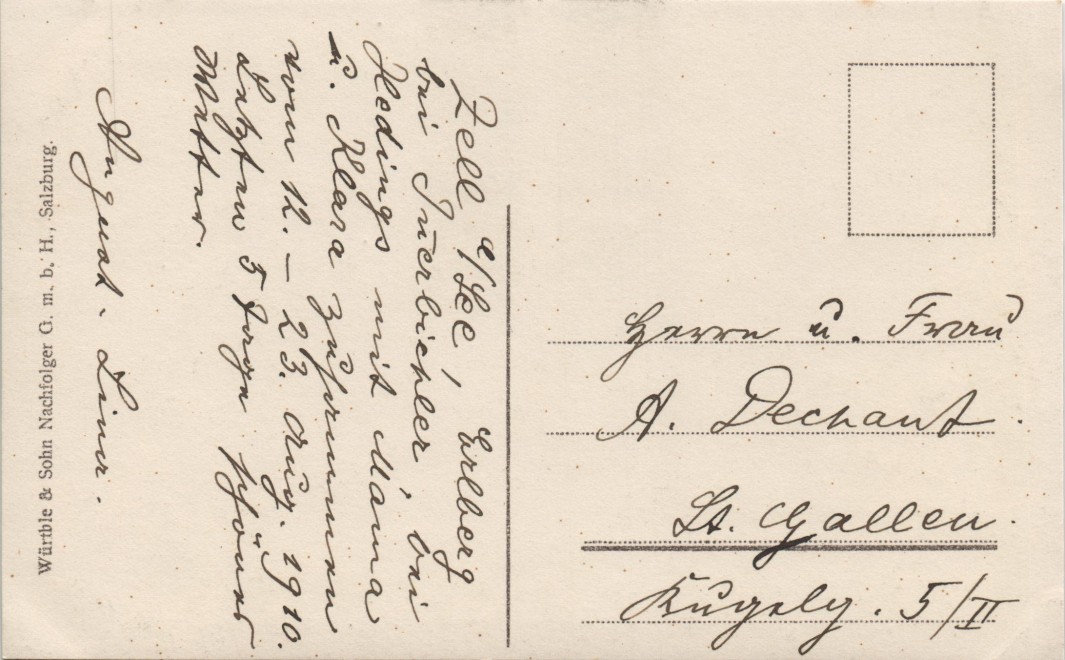 Zell a/See, Erlberg
bei Inerbichler, bei
Hedings mit Mama
u. Klara zusammen
vom 12. – 23. Aug. 1910.
Letzten 5 Tage schönes
Wetter.
August. Lina.
Herrn u. Frau
A. Dechant
St. Gallen.
Kugelg. 5/II
Würtble & Sohn Nachfolger G. m. b. H., Salzburg.